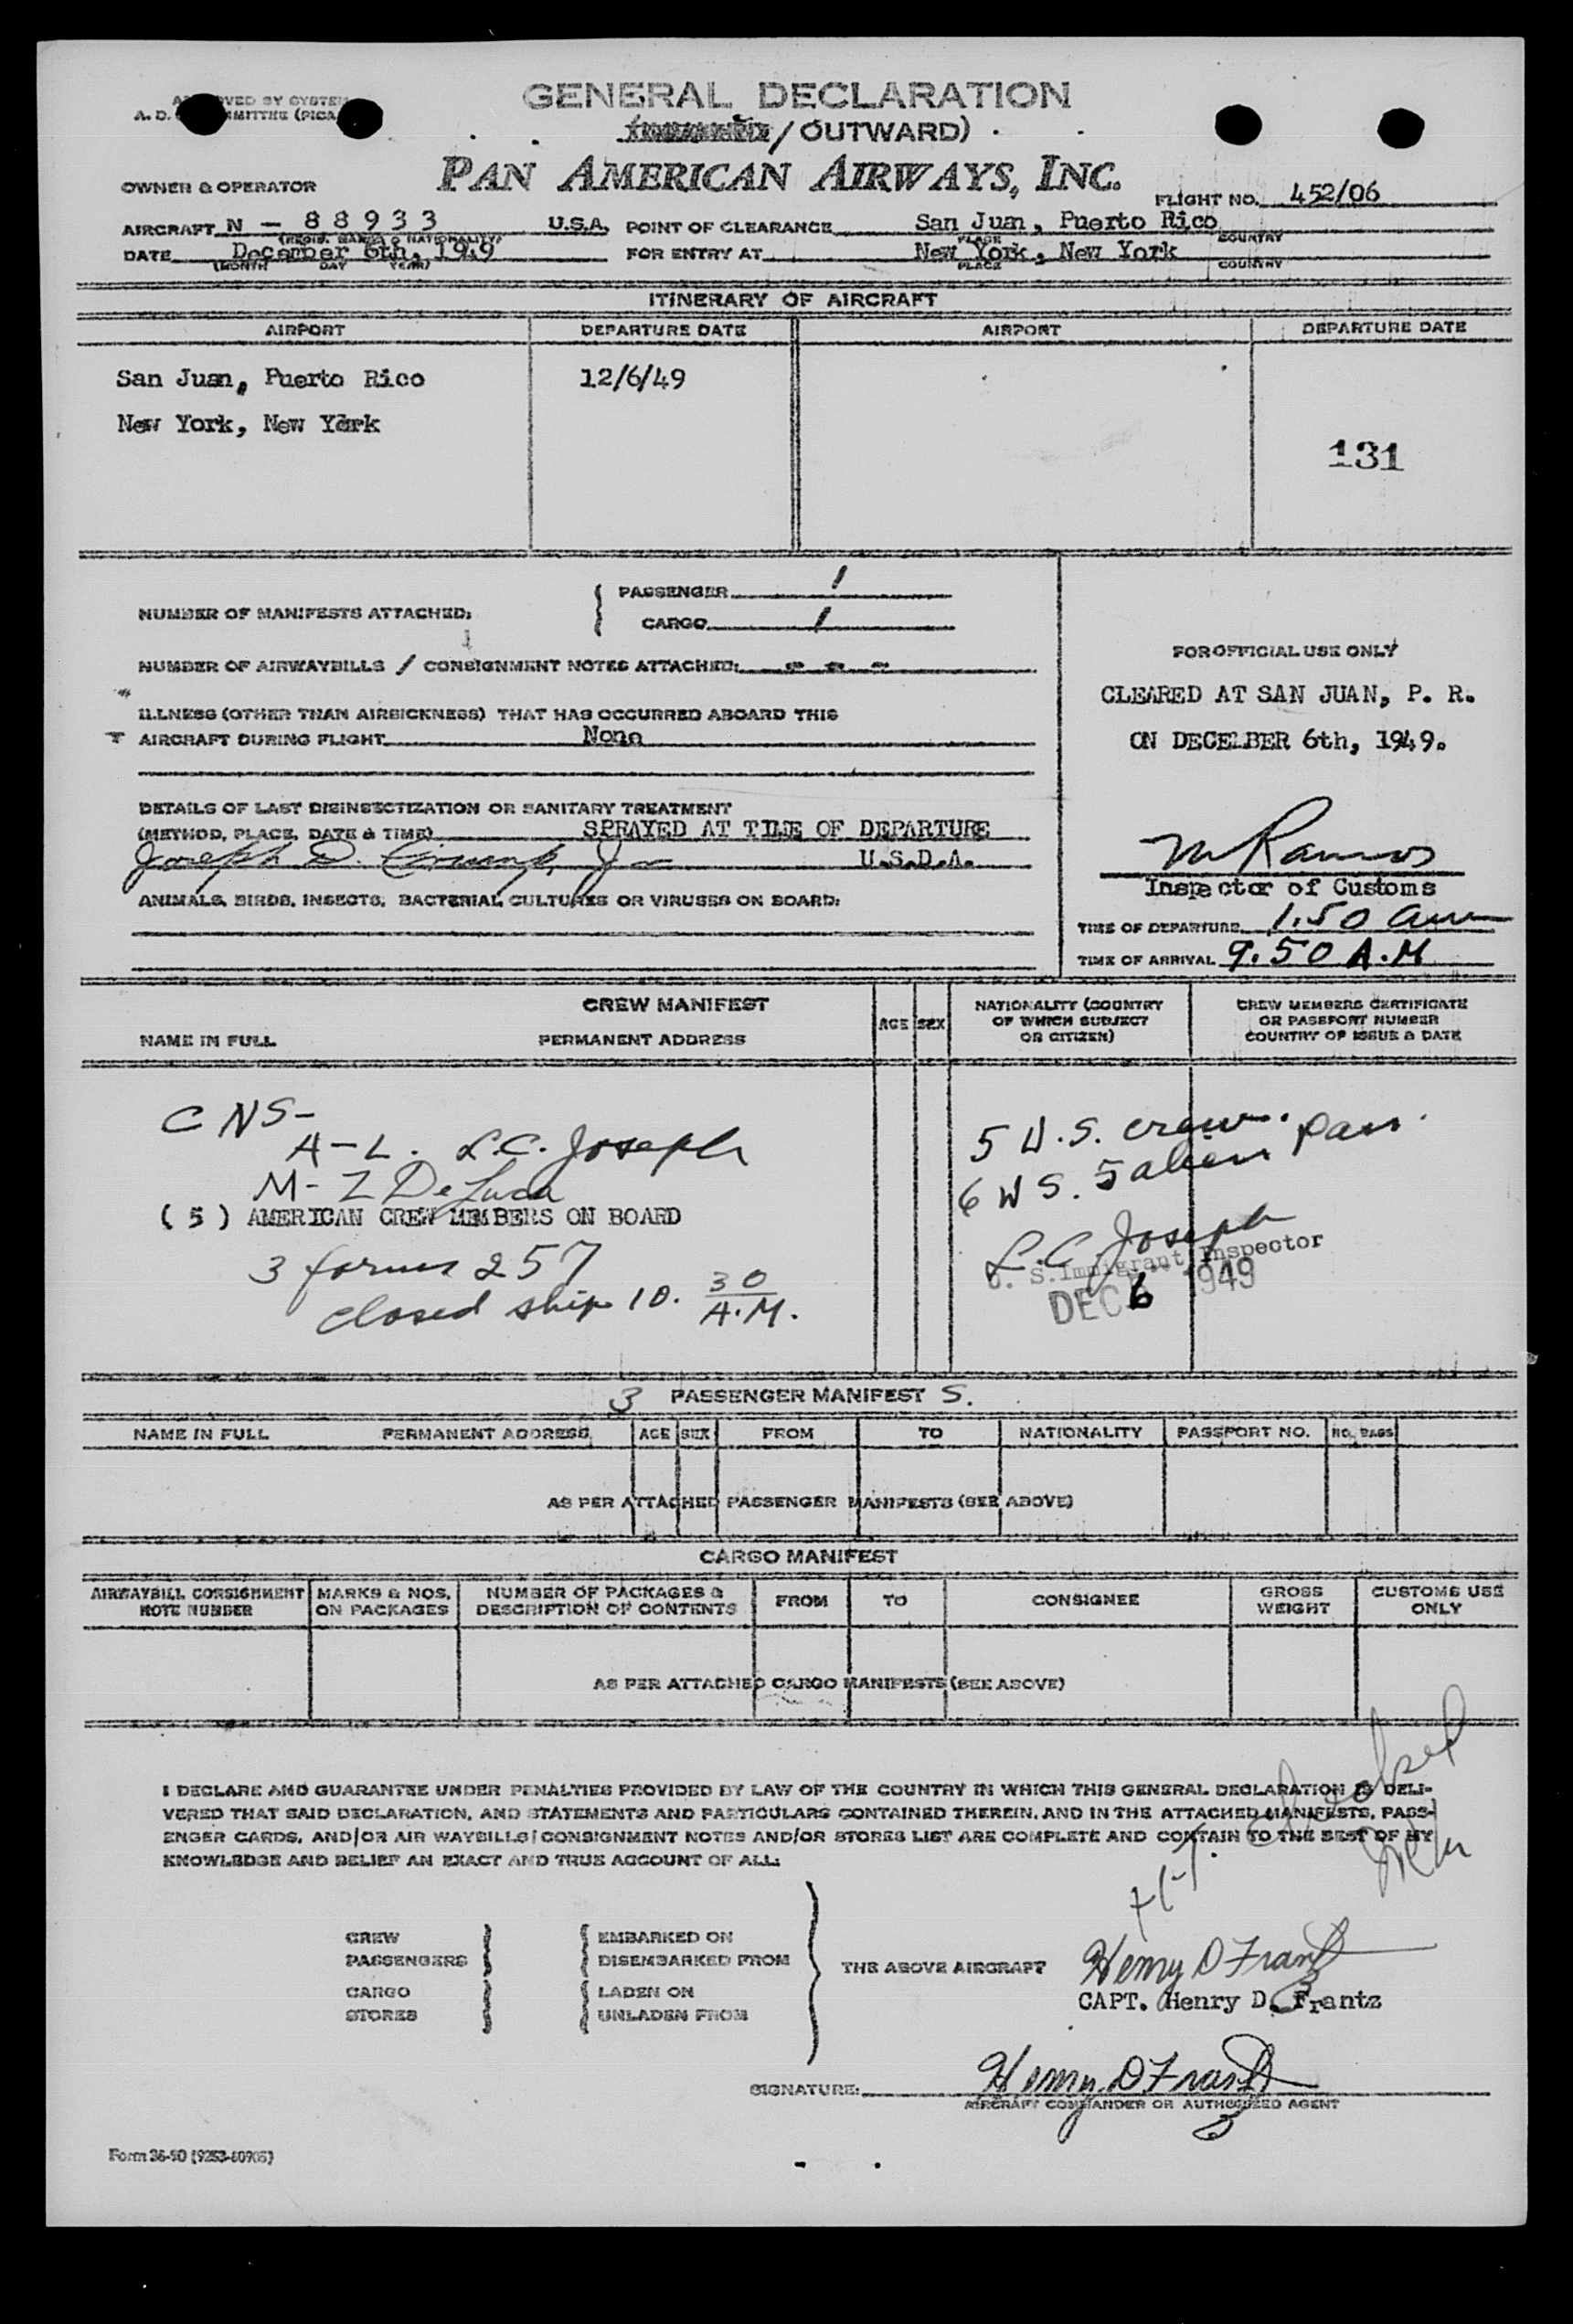 GENERAL DECLARATION
/ OUTWARD)
PAN AMERICAN AIRWAYS, INC.
OWNER & OPERATOR
FLIGHT NO. 452/06
AIRCRAFT N - 88933 U.S.A. POINT OF CLEARANCE San Juan, Puerto Rico
(REGIS. MARKS & NATIONALITY) PLACE COUNTRY
DATE December 6th, 1949 FOR ENTRY AT New York, New York
(MONTH DAY YEAR) PLACE COUNTRY
ITINERARY OF AIRCRAFT
AIRPORT DEPARTURE DATE AIRPORT DEPARTURE DATE
San Juan, Puerto Rico 12/6/49
New York, New York
131
NUMBER OF MANIFESTS ATTACHED: PASSENGER 1
CARGO 1
NUMBER OF AIRWAYBILLS / CONSIGNMENT NOTES ATTACHED: - - -
ILLNESS (OTHER THAN AIRSICKNESS) THAT HAS OCCURRED ABOARD THIS
AIRCRAFT DURING FLIGHT None
DETAILS OF LAST DISINSECTIZATION OR SANITARY TREATMENT
(METHOD, PLACE, DATE & TIME) SPRAYED AT TIME OF DEPARTURE
Joseph D. Jr U.S.D.A.
ANIMALS, BIRDS, INSECTS, BACTERIAL CULTURES OR VIRUSES ON BOARD:
FOR OFFICIAL USE ONLY
CLEARED AT SAN JUAN, P. R.
ON DECELBER 6th, 1949.
M Ramos
Inspector of Customs
TIME OF DEPARTURE 1.50 am
TIME OF ARRIVAL 9.50 A.M
CREW MANIFEST
NAME IN FULL PERMANENT ADDRESS AGE SEX NATIONALITY (COUNTRY OF WHICH SUBJECT OR CITIZEN) CREW MEMBERS CERTIFICATE OR PASSPORT NUMBER COUNTRY OF ISSUE & DATE
CNS-
A-L. L.C. Joseph
M-Z DeLuca
( 5 ) AMERICAN CREW MEMBERS ON BOARD
3 forms 257
closed ship 10. 30 A.M.
5 U.S. crew.
6 US. 5 alien pass.
L.C. Joseph
U. S. Immigrant Inspector
DEC 6 1949
3 PASSENGER MANIFEST S.
NAME IN FULL PERMANENT ADDRESS AGE SEX FROM TO NATIONALITY PASSPORT NO. NO. BAGS
AS PER ATTACHED PASSENGER MANIFESTS (SEE ABOVE)
CARGO MANIFEST
AIRWAYBILL CONSIGNMENT NOTE NUMBER MARKS & NOS. ON PACKAGES NUMBER OF PACKAGES & DESCRIPTION OF CONTENTS FROM TO CONSIGNEE GROSS WEIGHT CUSTOMS USE ONLY
AS PER ATTACHED CARGO MANIFESTS (SEE ABOVE)
I DECLARE AND GUARANTEE UNDER PENALTIES PROVIDED BY LAW OF THE COUNTRY IN WHICH THIS GENERAL DECLARATION IS DELI-
VERED THAT SAID DECLARATION, AND STATEMENTS AND PARTICULARS CONTAINED THEREIN, AND IN THE ATTACHED MANIFESTS, PASS-
ENGER CARDS, AND/OR AIR WAYBILLS/CONSIGNMENT NOTES AND/OR STORES LIST ARE COMPLETE AND CONTAIN TO THE BEST OF MY
KNOWLEDGE AND BELIEF AN EXACT AND TRUE ACCOUNT OF ALL:
CREW EMBARKED ON
PASSENGERS DISEMBARKED FROM
THE ABOVE AIRCRAFT
CARGO LADEN ON
STORES UNLADEN FROM
Henry D Frantz
CAPT. Henry D. Frantz
SIGNATURE: Henry D Frantz
AIRCRAFT COMMANDER OR AUTHORIZED AGENT
Form 36-50 (9253-60905)